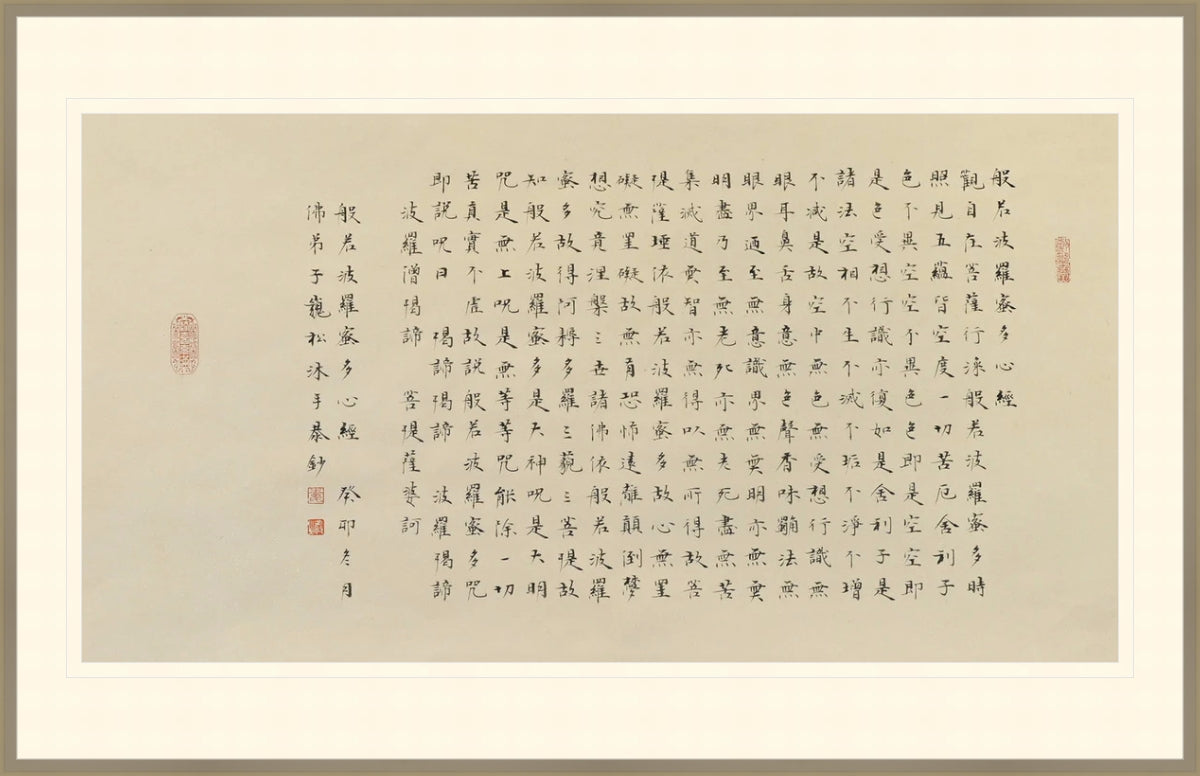 般若波羅蜜多心經
觀自在菩薩行深般若波羅蜜多時
照見五蘊皆空度一切苦厄舍利子
色不異空空不異色色即是空空即
是色受想行識亦復如是舍利子是
諸法空相不生不滅不垢不淨不增
不減是故空中無色無受想行識無
眼耳鼻舌身意無色聲香味觸法無
眼界迺至無意識界無無明亦無無
明盡乃至無老死亦無老死盡無苦
集滅道無智亦無得以無所得故菩
提薩埵依般若波羅蜜多故心無罣
礙無罣礙故無有恐怖遠離顛倒夢
想究竟涅槃三世諸佛依般若波羅
蜜多故得阿耨多羅三藐三菩提故
知般若波羅蜜多是大神咒是大明
咒是無上咒是無等等咒能除一切
苦真實不虛故說般若波羅蜜多咒
即說呪曰 揭諦揭諦 波羅揭諦
波羅僧揭諦 菩提薩婆訶
般若波羅蜜多心經 癸卯冬月
佛弟子龐松沐手恭鈔